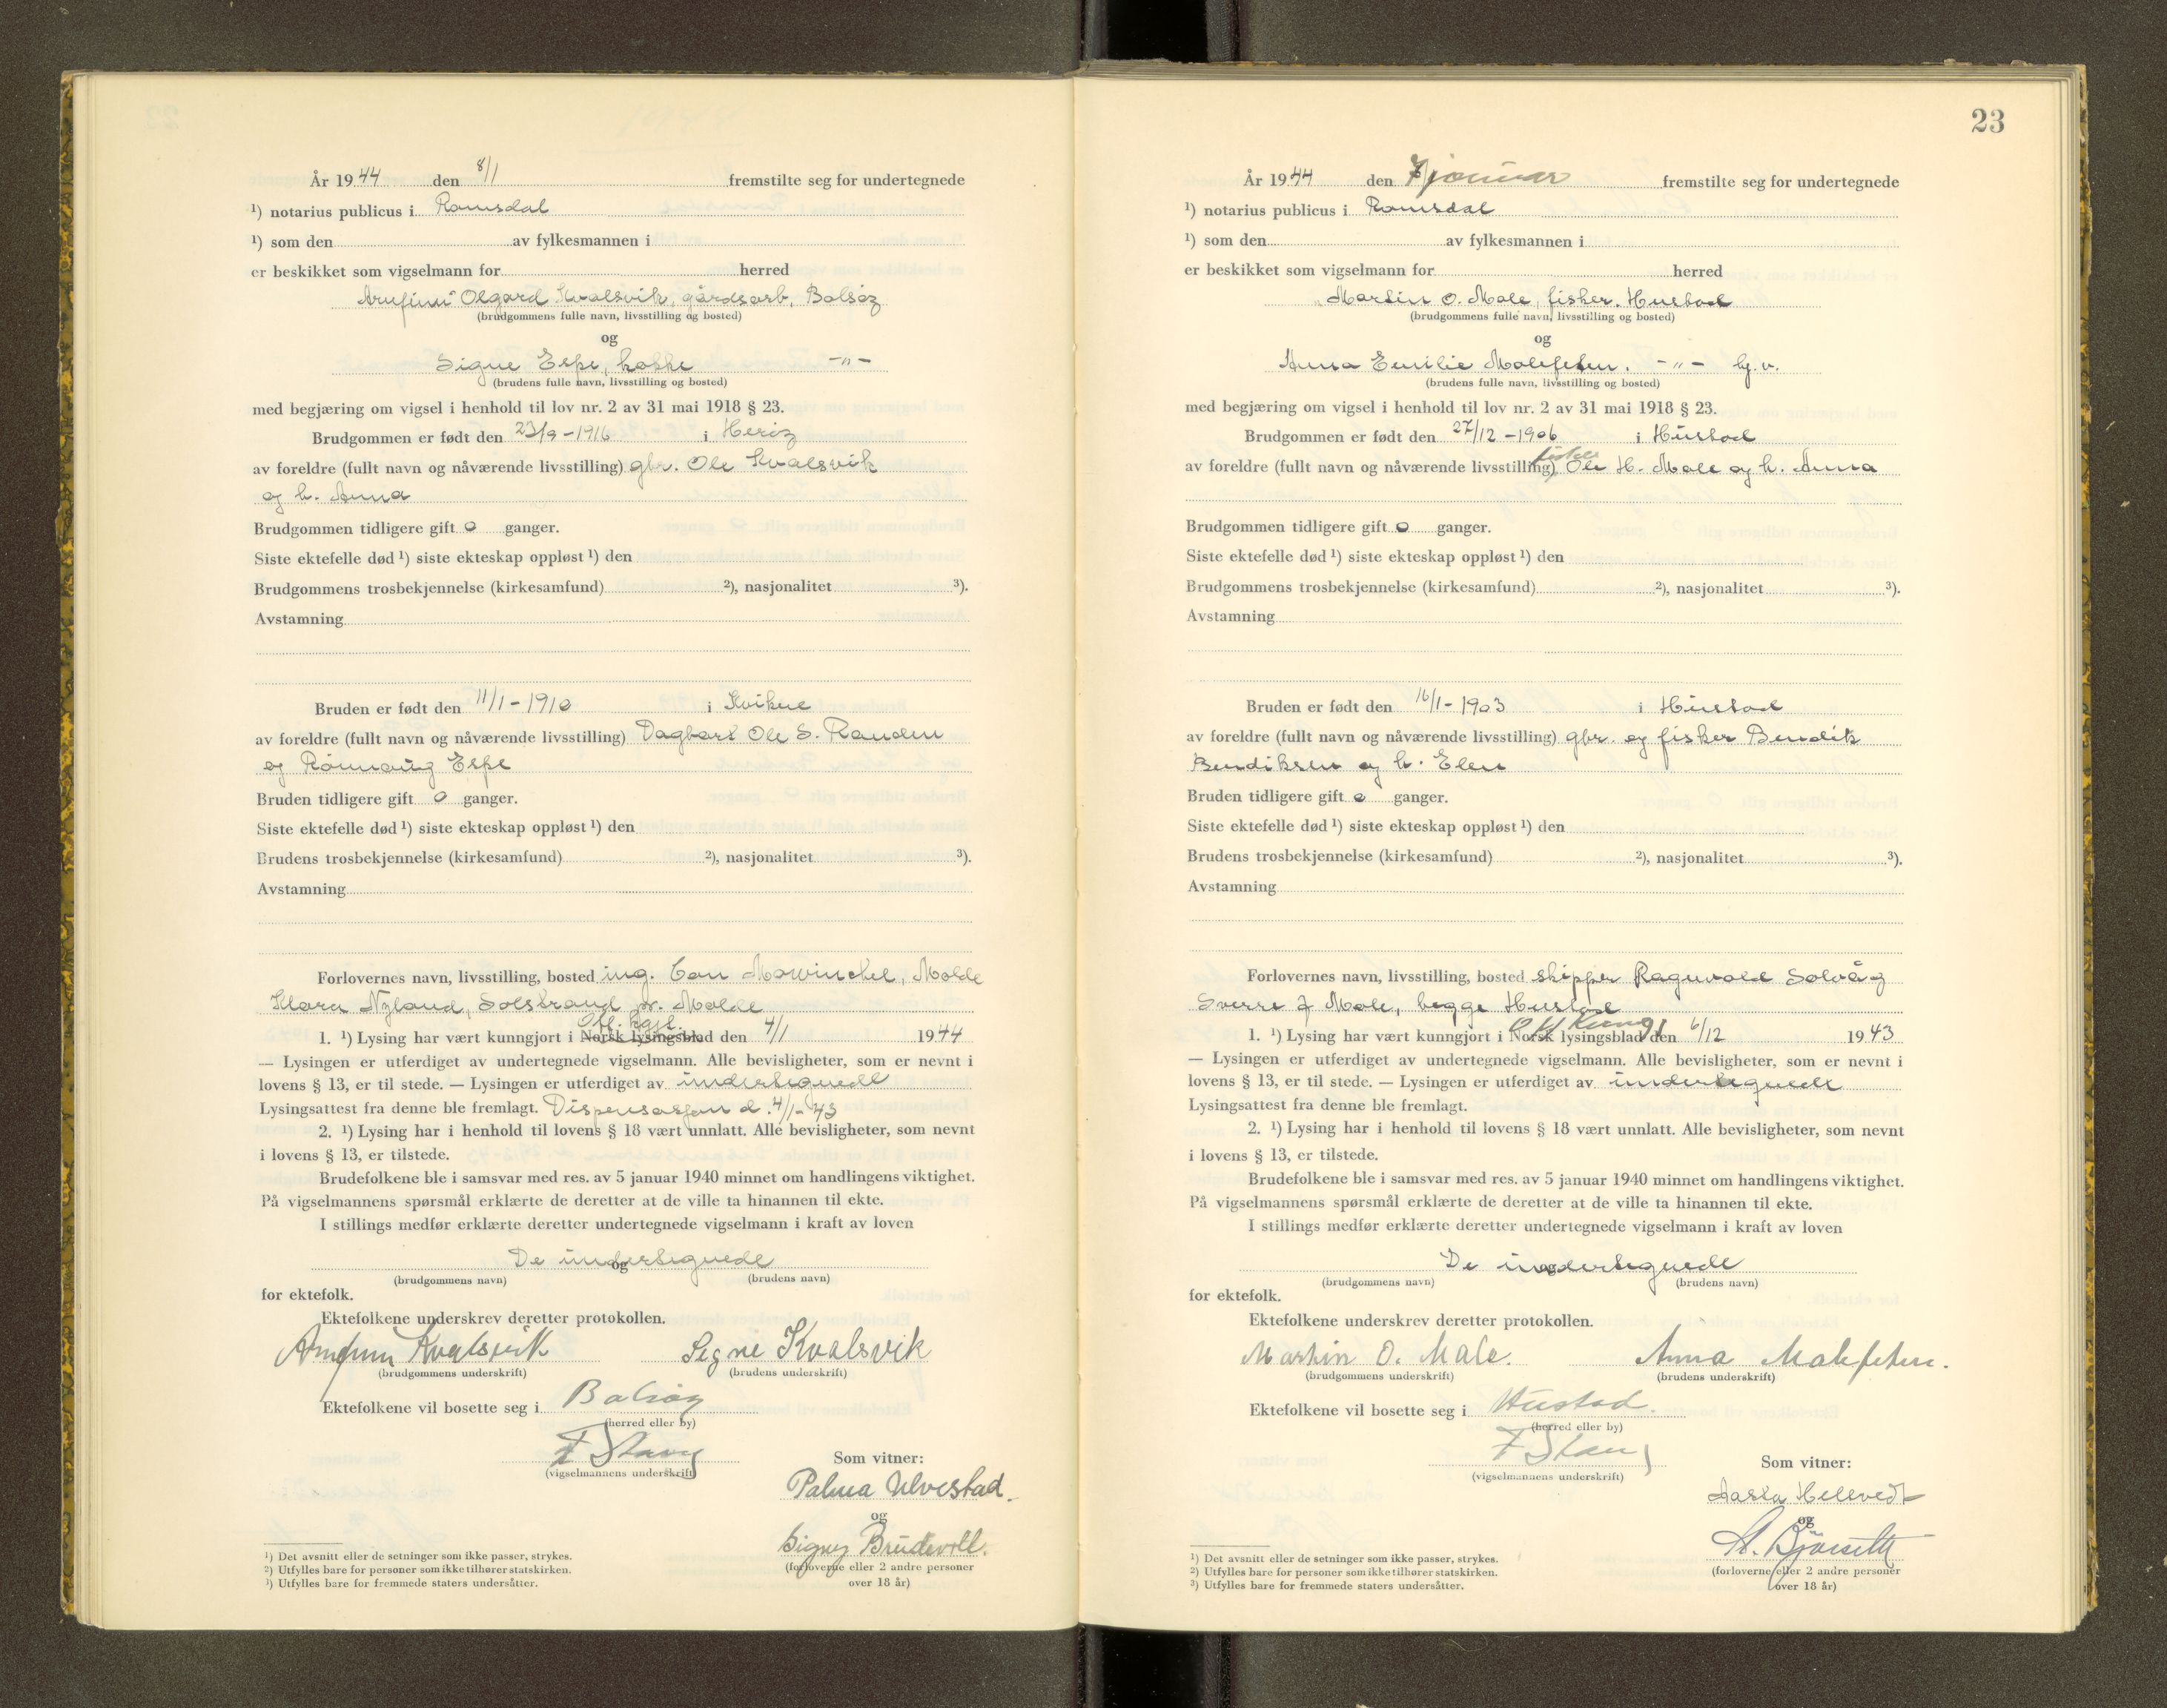 År 1944 den 8/1 fremstilte seg for undertegnede
¹) notarius publicus i Romsdal
¹) som den av fylkesmannen i
er beskikket som vigselmann for herred
Arnfinn Olgard Kvalsvik, gårdsarb, Bolsøy
(brudgommens fulle navn, livsstilling og bosted)
og
Signe Espe, kokke -"-
(brudens fulle navn, livsstilling og bosted)
med begjæring om vigsel i henhold til lov nr. 2 av 31 mai 1918 § 23.
Brudgommen er født den 23/9-1916 i Herøy
av foreldre (fullt navn og nåværende livsstilling) gbr. Ole Kvalsvik
og h. Anna
Brudgommen tidligere gift 0 ganger.
Siste ektefelle død ¹) siste ekteskap oppløst ¹) den
Brudgommens trosbekjennelse (kirkesamfund) ²), nasjonalitet ³).
Avstamning
Bruden er født den 11/1-1910 i Kvikne
av foreldre (fullt navn og nåværende livsstilling) Dagbarb Ole S. Randen
og Rønnaug Espe
Bruden tidligere gift 0 ganger.
Siste ektefelle død ¹) siste ekteskap oppløst ¹) den
Brudens trosbekjennelse (kirkesamfund) ²), nasjonalitet ³).
Avstamning
Forlovernes navn, livsstilling, bosted ing. Mowinckel, Molde
Klara Nyland, Solstrand pr. Molde
Off. kgjl.
1. ¹) Lysing har vært kunngjort i Norsk lysingsblad den 4/1 1944
— Lysingen er utferdiget av undertegnede vigselmann. Alle bevisligheter, som er nevnt i
lovens § 13, er til stede. — Lysingen er utferdiget av undertegnede
Lysingsattest fra denne ble fremlagt. Dispensasjon d. 4/1-43
2. ¹) Lysing har i henhold til lovens § 18 vært unnlatt. Alle bevisligheter, som nevnt
i lovens § 13, er tilstede.
Brudefolkene ble i samsvar med res. av 5 januar 1940 minnet om handlingens viktighet.
På vigselmannens spørsmål erklærte de deretter at de ville ta hinannen til ekte.
I stillings medfør erklærte deretter undertegnede vigselmann i kraft av loven
De undertegnede
og
(brudgommens navn) (brudens navn)
for ektefolk.
Ektefolkene underskrev deretter protokollen.
Arnfinn Kvalsvik Signe Kvalsvik
(brudgommens underskrift) (brudens underskrift)
Ektefolkene vil bosette seg i Bolsøy
(herred eller by)
F Stang
(vigselmannens underskrift)
Som vitner:
Palma Ulvestad.
og
Signy Brudevoll.
(forloverne eller 2 andre personer
over 18 år)
¹) Det avsnitt eller de setninger som ikke passer, strykes.
²) Utfylles bare for personer som ikke tilhører statskirken.
³) Utfylles bare for fremmede staters undersåtter.
23
År 1944 den 7 januar fremstilte seg for undertegnede
¹) notarius publicus i Romsdal
¹) som den av fylkesmannen i
er beskikket som vigselmann for herred
Martin O. Male, fisker, Hustad
(brudgommens fulle navn, livsstilling og bosted)
og
Anna Emilie Malefeten. -"- hj.v.
(brudens fulle navn, livsstilling og bosted)
med begjæring om vigsel i henhold til lov nr. 2 av 31 mai 1918 § 23.
Brudgommen er født den 27/12-1906 i Hustad
av foreldre (fullt navn og nåværende livsstilling) fisker Ole H. Male og h. Anna
Brudgommen tidligere gift 0 ganger.
Siste ektefelle død ¹) siste ekteskap oppløst ¹) den
Brudgommens trosbekjennelse (kirkesamfund) ²), nasjonalitet ³).
Avstamning
Bruden er født den 16/1-1903 i Hustad
av foreldre (fullt navn og nåværende livsstilling) gbr. og fisker Bendik
Bendiksen og h. Elen
Bruden tidligere gift 0 ganger.
Siste ektefelle død ¹) siste ekteskap oppløst ¹) den
Brudens trosbekjennelse (kirkesamfund) ²), nasjonalitet ³).
Avstamning
Forlovernes navn, livsstilling, bosted skipper Ragnvald Solvåg
Sverre J Male, begge Hustad
Off Kung
1. ¹) Lysing har vært kunngjort i Norsk lysingsblad den 6/12 1943
— Lysingen er utferdiget av undertegnede vigselmann. Alle bevisligheter, som er nevnt i
lovens § 13, er til stede. — Lysingen er utferdiget av undertegnede
Lysingsattest fra denne ble fremlagt.
2. ¹) Lysing har i henhold til lovens § 18 vært unnlatt. Alle bevisligheter, som nevnt
i lovens § 13, er tilstede.
Brudefolkene ble i samsvar med res. av 5 januar 1940 minnet om handlingens viktighet.
På vigselmannens spørsmål erklærte de deretter at de ville ta hinannen til ekte.
I stillings medfør erklærte deretter undertegnede vigselmann i kraft av loven
De undertegnede
og
(brudgommens navn) (brudens navn)
for ektefolk.
Ektefolkene underskrev deretter protokollen.
Martin O. Male. Anna Malefeten.
(brudgommens underskrift) (brudens underskrift)
Ektefolkene vil bosette seg i Hustad.
(herred eller by)
F Stang
(vigselmannens underskrift)
Som vitner:
Aasta Hellvedt
og
St. Bjørseth
(forloverne eller 2 andre personer
over 18 år)
¹) Det avsnitt eller de setninger som ikke passer, strykes.
²) Utfylles bare for personer som ikke tilhører statskirken.
³) Utfylles bare for fremmede staters undersåtter.